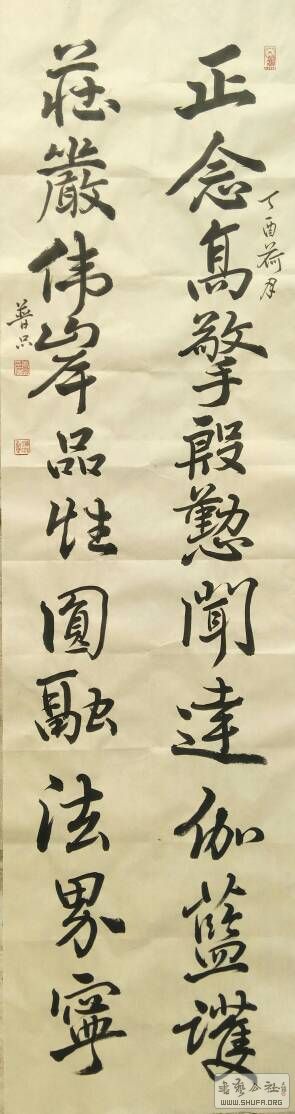 正念高擎殷懃聞達伽藍護
丁酉荷月
莊嚴伟岸品性圓融法界寧
普只
书艺公社
WWW.SHUFA.ORG